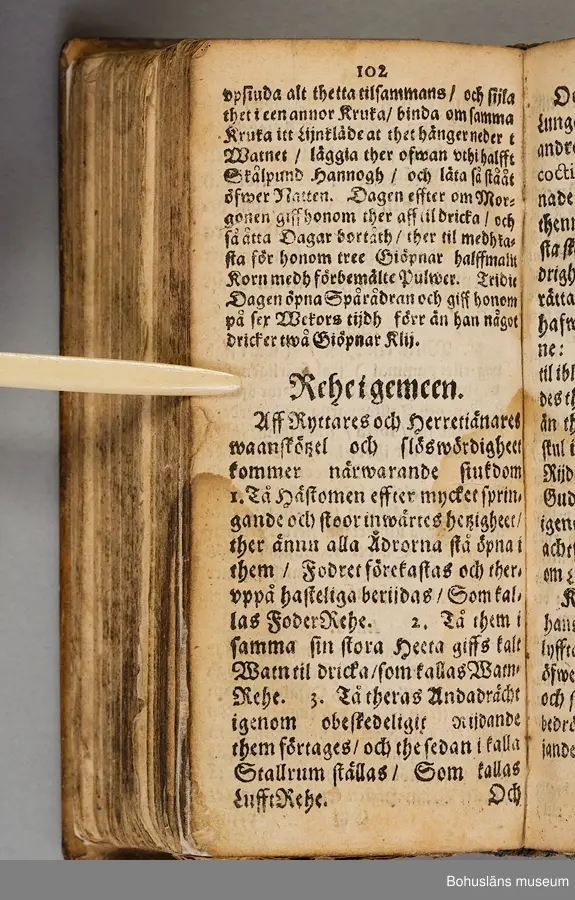 102
vpsiuda alt thetta tilsammans / och sijla
thet i een annor Kruka / binda om samma
Kruka itt Lijnkläde at thet hänger neder i
Watnet / läggia ther ofwan vthi halfft
Skålpund Hannogh / och läta så stååt
öfwer Natten. Dagen effter om Mor-
gonen giff honom ther aff til dricka / och
så åtta Dagar bortåth / ther til medh ka-
sta för honom tree Giöpnar halffmalit
Korn medh förbemälte Pulwer. Tridie
Dagen öpna Spårådran och giff honom
på sex Wekors tijdh förr än han något
dricker twå Giöpnar Klij.
Rehe i gemeen.
Aff Ryttares och Herretiänares
waanskötzel och slöswördigheet
kommer närwarande siukdom
1. Tå Hästomen effter mycket sprin-
gande och stoor inwärtes hetzigheet /
ther ännu alla Ådrorna stå öpna i
them / Fodret förekastas och ther-
vppå hasteliga berijdas / Som kal-
las Foder Rehe. 2. Tå them i
samma sin stora Heeta giffs kalt
Watn til dricka / som kallas Watn-
Rehe. 3. Tå theras Andadrächt
igenom obeskedeligit Rijdande
them förtages / och the sedan i kalla
Stallrum ställas / Som kallas
Lufft Rehe. Och
Lung
andre
cocti
nade
then
drigh
rätta
hafw
ne:
til ibl
des th
än th
stul i
Rijd
Gud
igen
acht
om
hans
lyffte
öfwe
och s
bedrö
jande
Bohusläns museum